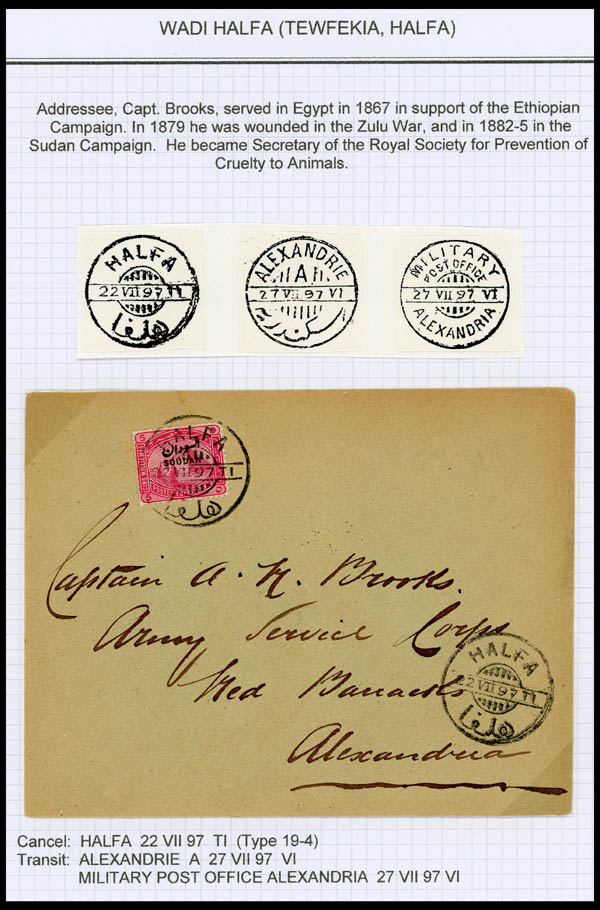 WADI HALFA (TEWFEKIA, HALFA)
Addressee, Capt. Brooks, served in Egypt in 1867 in support of the Ethiopian
Campaign. In 1879 he was wounded in the Zulu War, and in 1882-5 in the
Sudan Campaign. He became Secretary of the Royal Society for Prevention of
Cruelty to Animals.
HALFA
22 VII 97 T1
هلفا
ALEXANDRIE
A
27 VII 97 VI
MILITARY
POST OFFICE
27 VII 97 VI
ALEXANDRIA
HALFA
السودان
SOUDAN
22 VII 97 T1
هلفا
Captain A. K. Brooks.
Army Service Corps
Red Barracks
Alexandria
HALFA
22 VII 97 T1
هلفا
Cancel: HALFA 22 VII 97 TI (Type 19-4)
Transit: ALEXANDRIE A 27 VII 97 VI
MILITARY POST OFFICE ALEXANDRIA 27 VII 97 VI